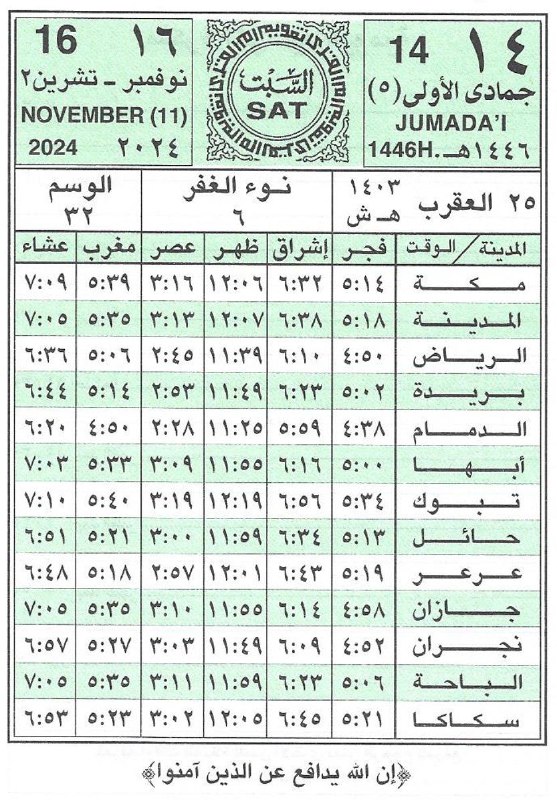 ١٤ 14
جمادى الأولى (٥)
JUMADA'I
١٤٤٦هـ. 1446H.
السبت
SAT
١٦ 16
نوفمبر - تشرين ٢
NOVEMBER (11)
٢٠٢٤ 2024
٢٥ العقرب ١٤٠٣ هـ ش
نوء الغفر
٦
الوسم
٣٢
المدينة / الوقت فجر إشراق ظهر عصر مغرب عشاء
مكة ٥:١٤ ٦:٣٢ ١٢:٠٦ ٣:١٦ ٥:٣٩ ٧:٠٩
المدينة ٥:١٨ ٦:٣٨ ١٢:٠٧ ٣:١٣ ٥:٣٥ ٧:٠٥
الرياض ٤:٥٠ ٦:١٠ ١١:٣٩ ٢:٤٥ ٥:٠٦ ٦:٣٦
بريدة ٥:٠٢ ٦:٢٣ ١١:٤٩ ٢:٥٣ ٥:١٤ ٦:٤٤
الدمام ٤:٣٨ ٥:٥٩ ١١:٢٥ ٢:٢٨ ٤:٥٠ ٦:٢٠
أبها ٥:٠٠ ٦:١٦ ١١:٥٥ ٣:٠٩ ٥:٣٣ ٧:٠٣
تبوك ٥:٣٤ ٦:٥٦ ١٢:١٩ ٣:١٩ ٥:٤٠ ٧:١٠
حائل ٥:١٣ ٦:٣٤ ١١:٥٩ ٣:٠٠ ٥:٢١ ٦:٥١
عرعر ٥:١٩ ٦:٤٣ ١٢:٠١ ٢:٥٧ ٥:١٨ ٦:٤٨
جازان ٤:٥٨ ٦:١٤ ١١:٥٥ ٣:١٠ ٥:٣٥ ٧:٠٥
نجران ٤:٥٢ ٦:٠٩ ١١:٤٩ ٣:٠٣ ٥:٢٧ ٦:٥٧
الباحة ٥:٠٦ ٦:٢٣ ١١:٥٩ ٣:١١ ٥:٣٥ ٧:٠٥
سكاكا ٥:٢١ ٦:٤٥ ١٢:٠٥ ٣:٠٢ ٥:٢٣ ٦:٥٣
﴿إن الله يدافع عن الذين آمنوا﴾